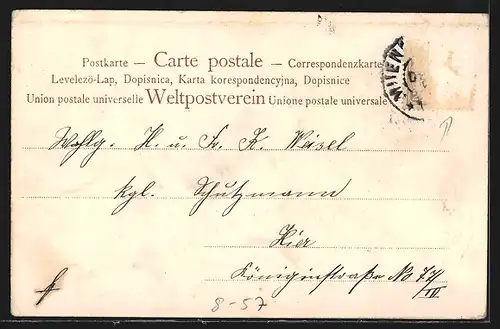 Postkarte — Carte postale — Correspondenzkarte
Levelező-Lap, Dopisnica, Karta korespondencyjna, Dopisnice
Union postale universelle Weltpostverein Unione postale universale
Wohlg. H. u. Fr. K. Weizel
kgl. Schutzmann
Hier
Königinstraße No 77
/III
8-57